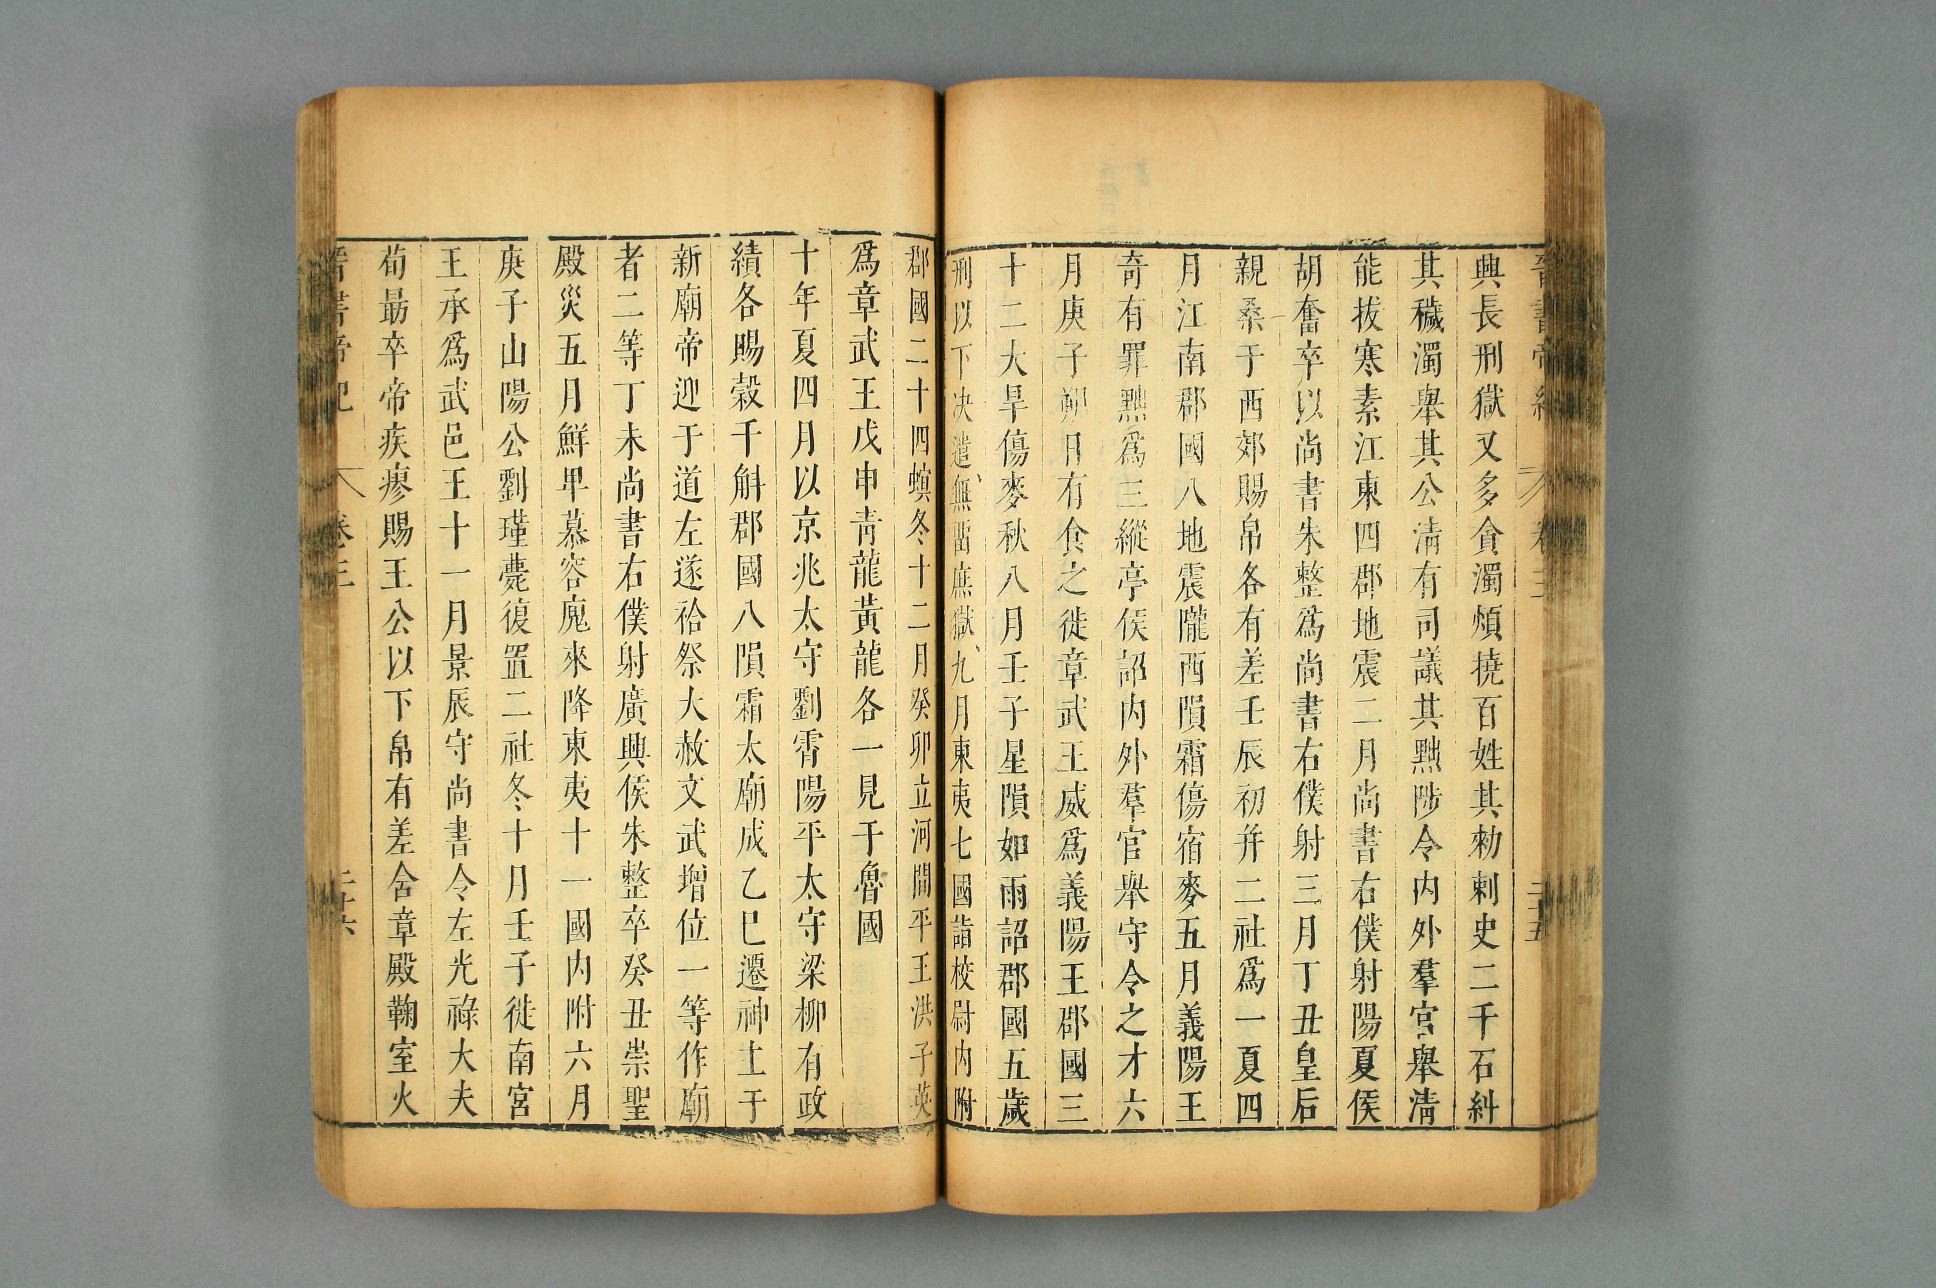 晉書帝紀 卷三 二十五
興長刑獄又多貪濁煩撓百姓其勑刺史二千石糾
其穢濁舉其公清有司議其黜陟令内外羣官舉清
能拔寒素江東四郡地震二月尚書右僕射陽夏侯
胡奮卒以尚書朱整爲尚書右僕射三月丁丑皇后
親桑于西郊賜帛各有差壬辰初并二社爲一夏四
月江南郡國八地震隴西隕霜傷宿麥五月義陽王
奇有罪黜爲三縱亭侯詔内外羣官舉守令之才六
月庚子朔日有食之徙章武王威爲義陽王郡國三
十二大旱傷麥秋八月壬子星隕如雨詔郡國五歲
刑以下决遣無留庶獄九月東夷七國詣校尉内附
郡國二十四螟冬十二月癸卯立河間平王洪子英
爲章武王戊申青龍黃龍各一見于魯國
十年夏四月以京兆太守劉霄陽平太守梁柳有政
績各賜穀千斛郡國八隕霜太廟成乙巳遷神主于
新廟帝迎于道左遂祫祭大赦文武增位一等作廟
者二等丁未尚書右僕射廣興侯朱整卒癸丑崇聖
殿災五月鮮卑慕容廆來降東夷十一國内附六月
庚子山陽公劉瑾薨復置二社冬十月壬子徙南宮
王承爲武邑王十一月景辰守尚書令左光祿大夫
荀勗卒帝疾瘳賜王公以下帛有差含章殿鞠室火
晉書帝紀 卷三 二十六